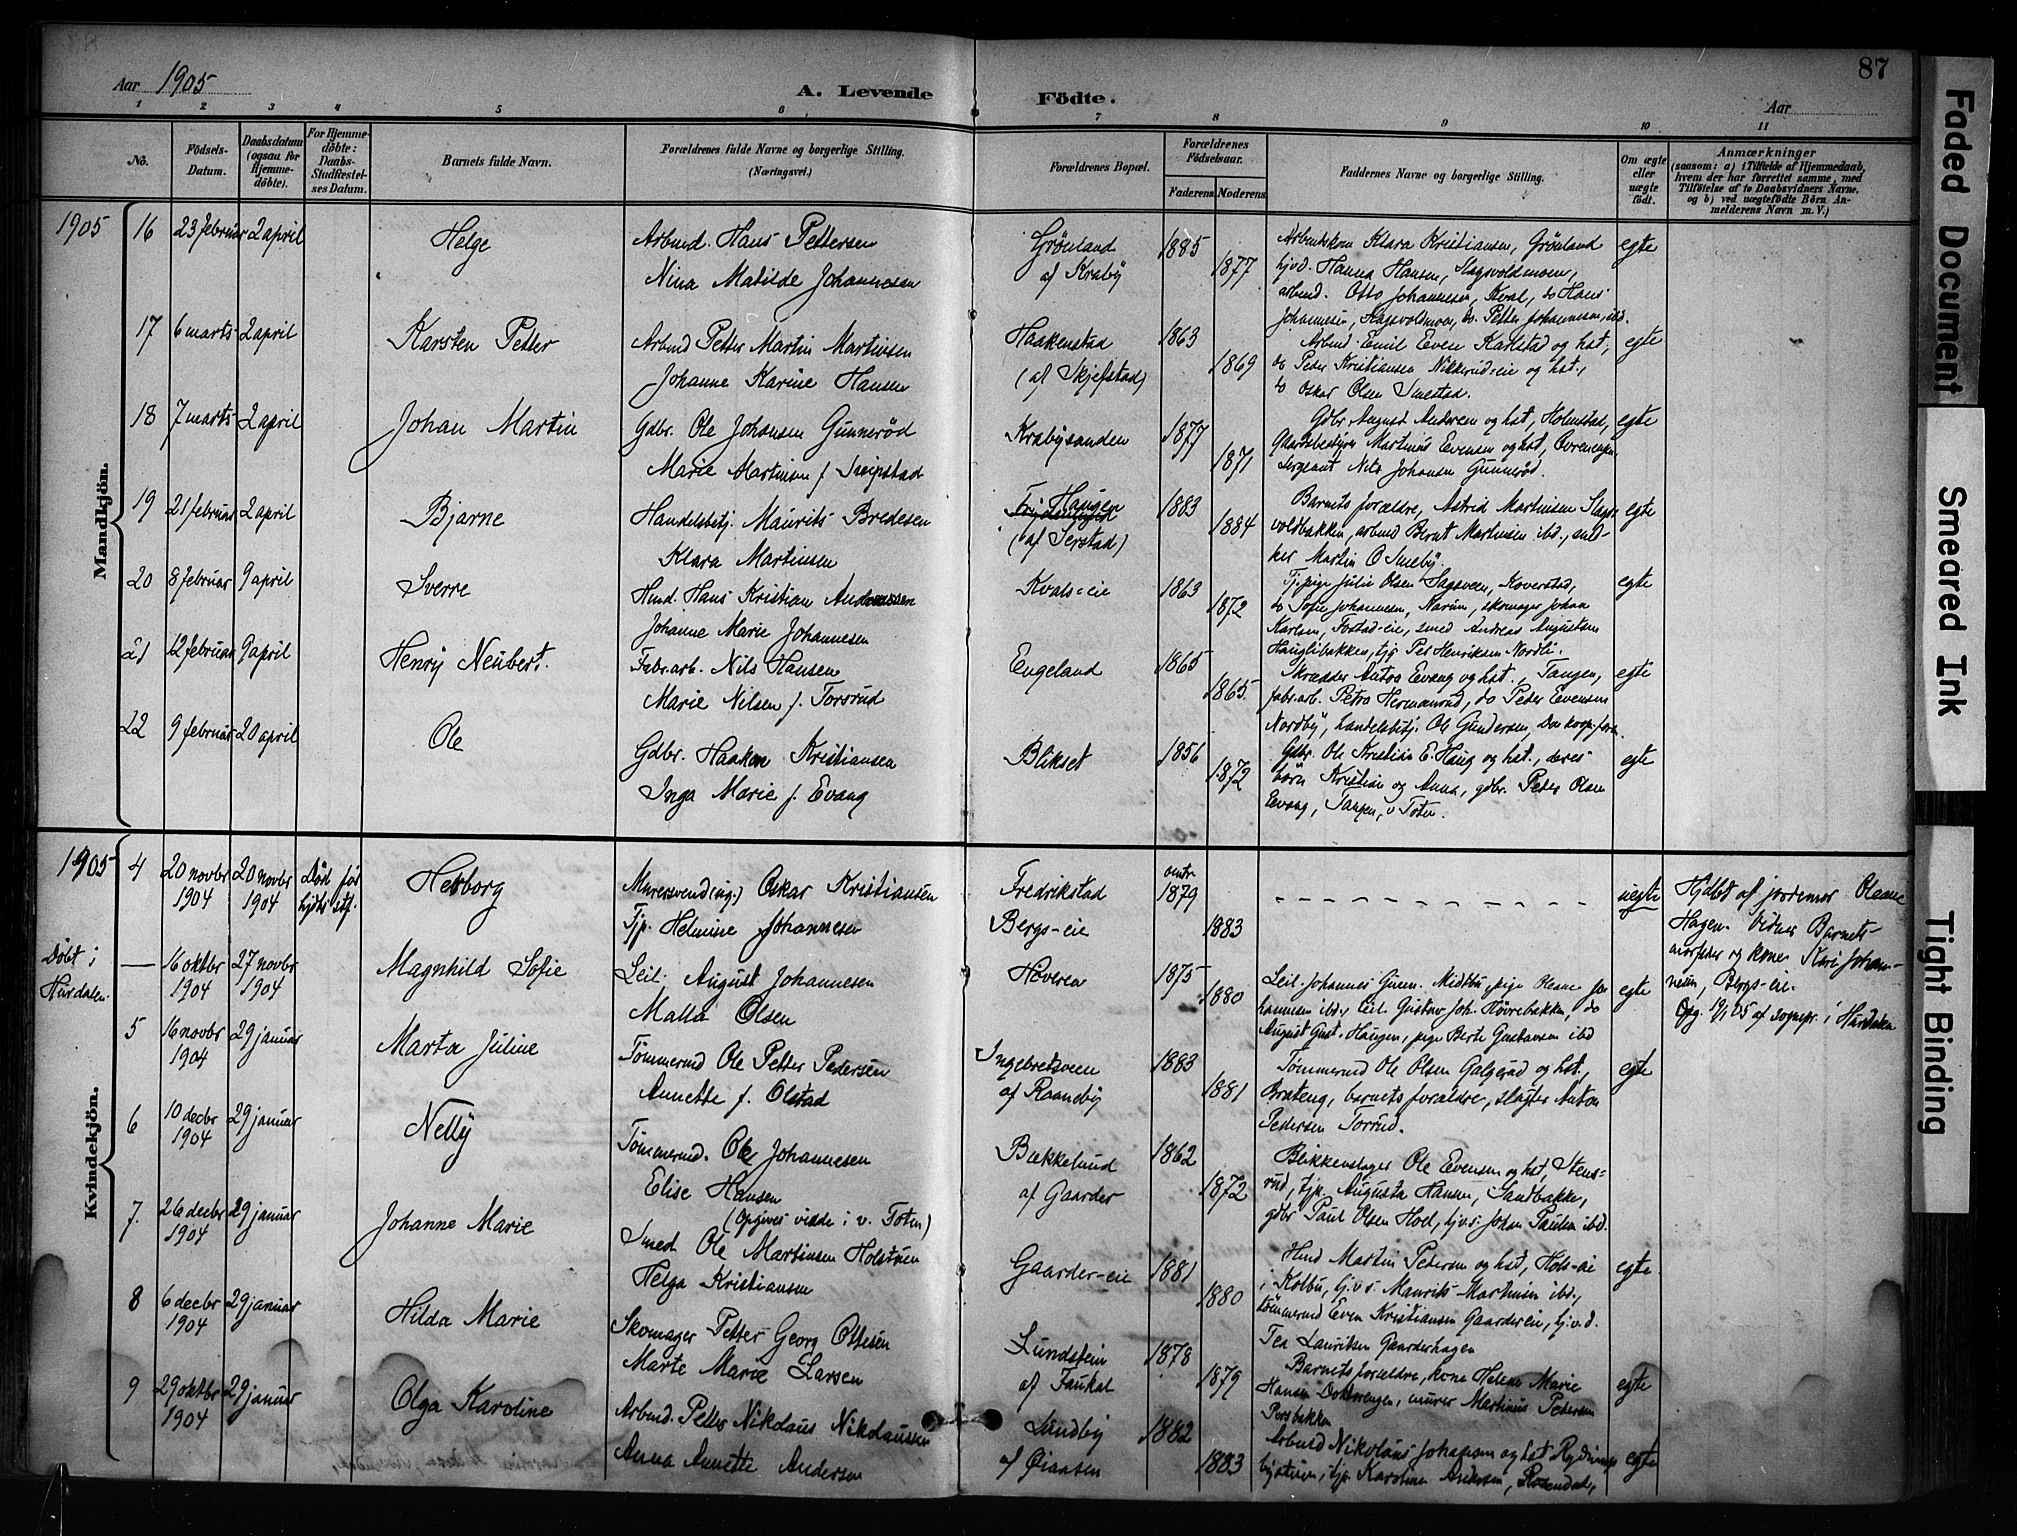 87
Aar 1905
A. Levende Födte.
Aar
1 2 3 4 5 6 7 8 9 10 11
No.
Födsels-Datum.
Daabsdatum (ogsaa for Hjemme-döbte).
For Hjemme-döbte: Daabs-Stadfæstel-ses Datum.
Barnets fulde Navn.
Forældrenes fulde Navne og borgerlige Stilling. (Næringsvei.)
Forældrenes Bopæl.
Forældrenes Födselsaar.
Faderens. Moderens.
Faddernes Navne og borgerlige Stilling.
Om ægte eller uægte födt.
Anmærkninger
(saasom: a) i Tilfælde af Hjemmedaab, hvem der har forrettet samme, med Tilföielse af to Daabsvidners Navne, og b) ved uægtefödte Börn An-melderens Navn m. V.)
Mandkjön.
1905 16 23 februar 2 april Helge
Arbmd. Hans Pettersen
Nina Matilde Johannesen
Grønland
af Kraby
1885 1877
Arbeidskone Klara Kristiansen, Grønland
hjvd. Hanna Hansen, Slagsvoldmoen,
arbmd. Otto Johannesen, Kval, do Hans
Johannesen, Slagsvoldmoen, do. Petter Johannesen, ibd.
egte
17 6 marts 2 april Karsten Petter
Arbmd Petter Martin Martinsen
Johanne Karine Hansen
Haakenstad
(af Skjefstad)
1863 1869
Arbmd Emil Even Karlstad og hst.,
do Peder Kristiansen Nikkerud-eie og hst.,
do Oskar Olsen Smestad.
egte
18 7 marts 2 april Johan Martin
Gdbr. Ole Johansen Gunnerød
Marie Martinsen f. Sveipstad
Krabysanden
1877 1871
Gdbr. August Andersen og hst, Holmstad,
Martinus Evensen og hst,
Sergeant Nils Johansen Gunnerød.
egte
19 21 februar 2 april Bjarne
Handelsbetj. Maurits Bredesen
Klara Martinsen
Haugen
(af Serstad)
1883 1884
Barnets forældre, Astrid Martinsen Slags-
voldbakken, arbmd Bernt Martinsen ibd., snik-
ker Martin O. Smeby.
egte
20 8 februar 9 april Sverre
Hmd. Hans Kristian Andersen
Johanne Marie Johannesen
Kvals-eie
1863 1872
Tj.pige Julie Olsen Sagsveen, Koverstad,
do Sofie Johannesen, Narum, skomager Johan
Karlsen, Fostad-eie, smed Andreas Augustsen
Hauglibakken, tjg Per Henriksen Nordli.
egte
21 12 februar 9 april Henry Neubert.
Fabr.arb. Nils Hansen
Marie Nilsen f. Torsrud
Engeland
1865 1865
Skrædder Anton Evang og hst., Tangen,
fabr.arb. Petra Hermanrud, do Peder Evensen
Nordby, handelsbetj. Ole Gundersen,
egte
22 9 februar 20 april Ole
Gdbr. Haakon Kristiansen
Inga Marie f. Evang
Blikset
1856 1872
Gdbr. Ole Kristian E. Haug og hst., deres
børn Kristian og Anna, gdbr. Peder Olsen
Evang, Tangen, v. Toten.
egte
Kvindekjön.
1905 4 20 novbr 1904 20 novbr 1904 Død før hjdb. stf. Herborg
Murersvend (ug.) Oskar Kristiansen
Tjp. Helmine Johannesen
Fredrikstad
Bergs-eie
omtr 1879 1883
uegte
Hjdbt af jordemor Oleane
Hagen. Vidner Barnets
morfader og kone Kari Johan-
nesen, Bergs-eie.
Døbt i Hurdalen — 16 oktbr 1904 27 novbr 1904 Magnhild Sofie
Leil. August Johannesen
Malla Olsen
Høveren
1875 1880
Leil. Johannes Midtbu, pige Oleane Jo-
hannesen ibd., Leil. Gustav Joh. Høvrebakken, do
August Gust. Haugen, pige Berte Gustavsen ibd
egte
Opg. 19/1 05 af sognepr. i Hurdalen
5 16 novbr 1904 29 januar Marta Juline
Tømmermd Ole Petter Pedersen
Annette f. Olstad
Ingebretsveen
af Raaneby
1883 1881
Tømmermd Ole Olsen Galgerud og hst,
Brateng, barnets forældre, slagter Anton
Pedersen Torrud.
egte
6 10 decbr 1904 29 januar Nelly
Tømmermd. Ole Johannesen
Elise Hansen
(Opgives viede i v. Toten)
Bækkelund
af Gaarder
1862 1872
Blikkenslager Ole Evensen og hst, Stens-
rud, tjp. Augusta Hansen, Sandbakke,
gdbr Paul Olsen Hoel, hj.v.s. Johan Paulsen ibd.
7. 26 decbr 1904 29 januar Johanne Marie
Smed Ole Martinsen Holstuen
Helga Kristiansen
Gaarder-eie
1881 1880
Hmd Martin Pedersen og hst, Hols-eie
i Kolbu, hj.v.s. Maurits Martinsen ibd.,
tømmermd Even Kristiansen Gaardereie, hj.v.d.
Tea Lauritsen Gaarderhagen
egte.
8 6 decbr 1904 29 januar Hilda Marie
Skomager Petter Georg Ottesen
Marte Marie Larsen
Lundstein
af Faukal
1878 1879
Barnets forældre, kone Helene Marie
Hansen Dokkengen, murer Martinus Pedersen
Persbakken
egte
9 29 oktbr 1904 29 januar Olga Karoline
Arbmd. Petter Nikolaus Nikolaussen
Anna Annette Andersen
Lundby
af Øiaasen
1882 1883
Arbmd Nikolaus Johansen og hst
tjp Karoline Andersen, Rosendal,
egte
Faded Document
Smeared Ink
Tight Binding